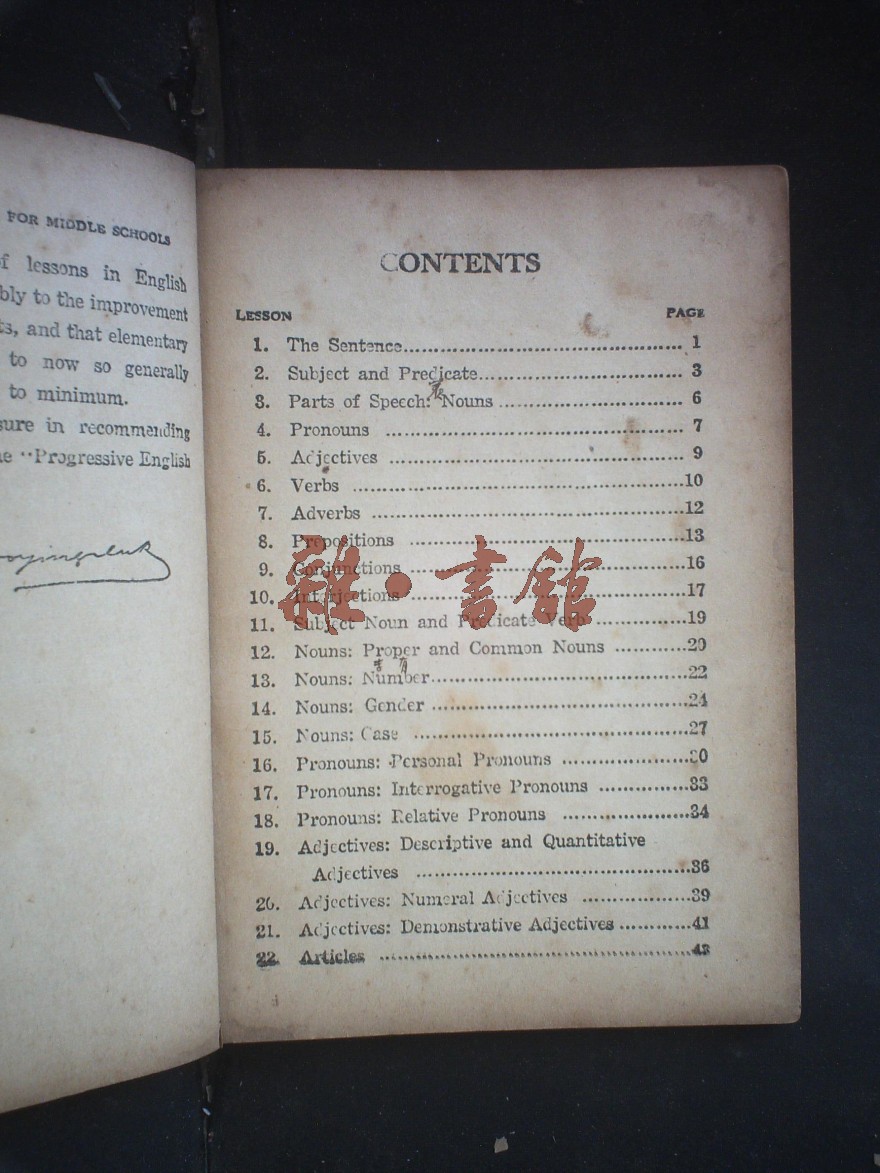 FOR MIDDLE SCHOOLS
of lessons in English
bly to the improvement
ts, and that elementary
to now so generally
to minimum.
sure in recommending
he "Progressive English
CONTENTS
LESSON PAGE
1. The Sentence 1
2. Subject and Predicate 3
3. Parts of Speech: Nouns 6
4. Pronouns 7
5. Adjectives 9
6. Verbs 10
7. Adverbs 12
8. Prepositions 13
9. Conjunctions 16
10. Interjections 17
11. Subject Noun and Predicate Verb 19
12. Nouns: Proper and Common Nouns 20
13. Nouns: Number 22
14. Nouns: Gender 24
15. Nouns: Case 27
16. Pronouns: Personal Pronouns 30
17. Pronouns: Interrogative Pronouns 33
18. Pronouns: Relative Pronouns 34
19. Adjectives: Descriptive and Quantitative
Adjectives 36
20. Adjectives: Numeral Adjectives 39
21. Adjectives: Demonstrative Adjectives 41
22. Articles 43
雜·書館